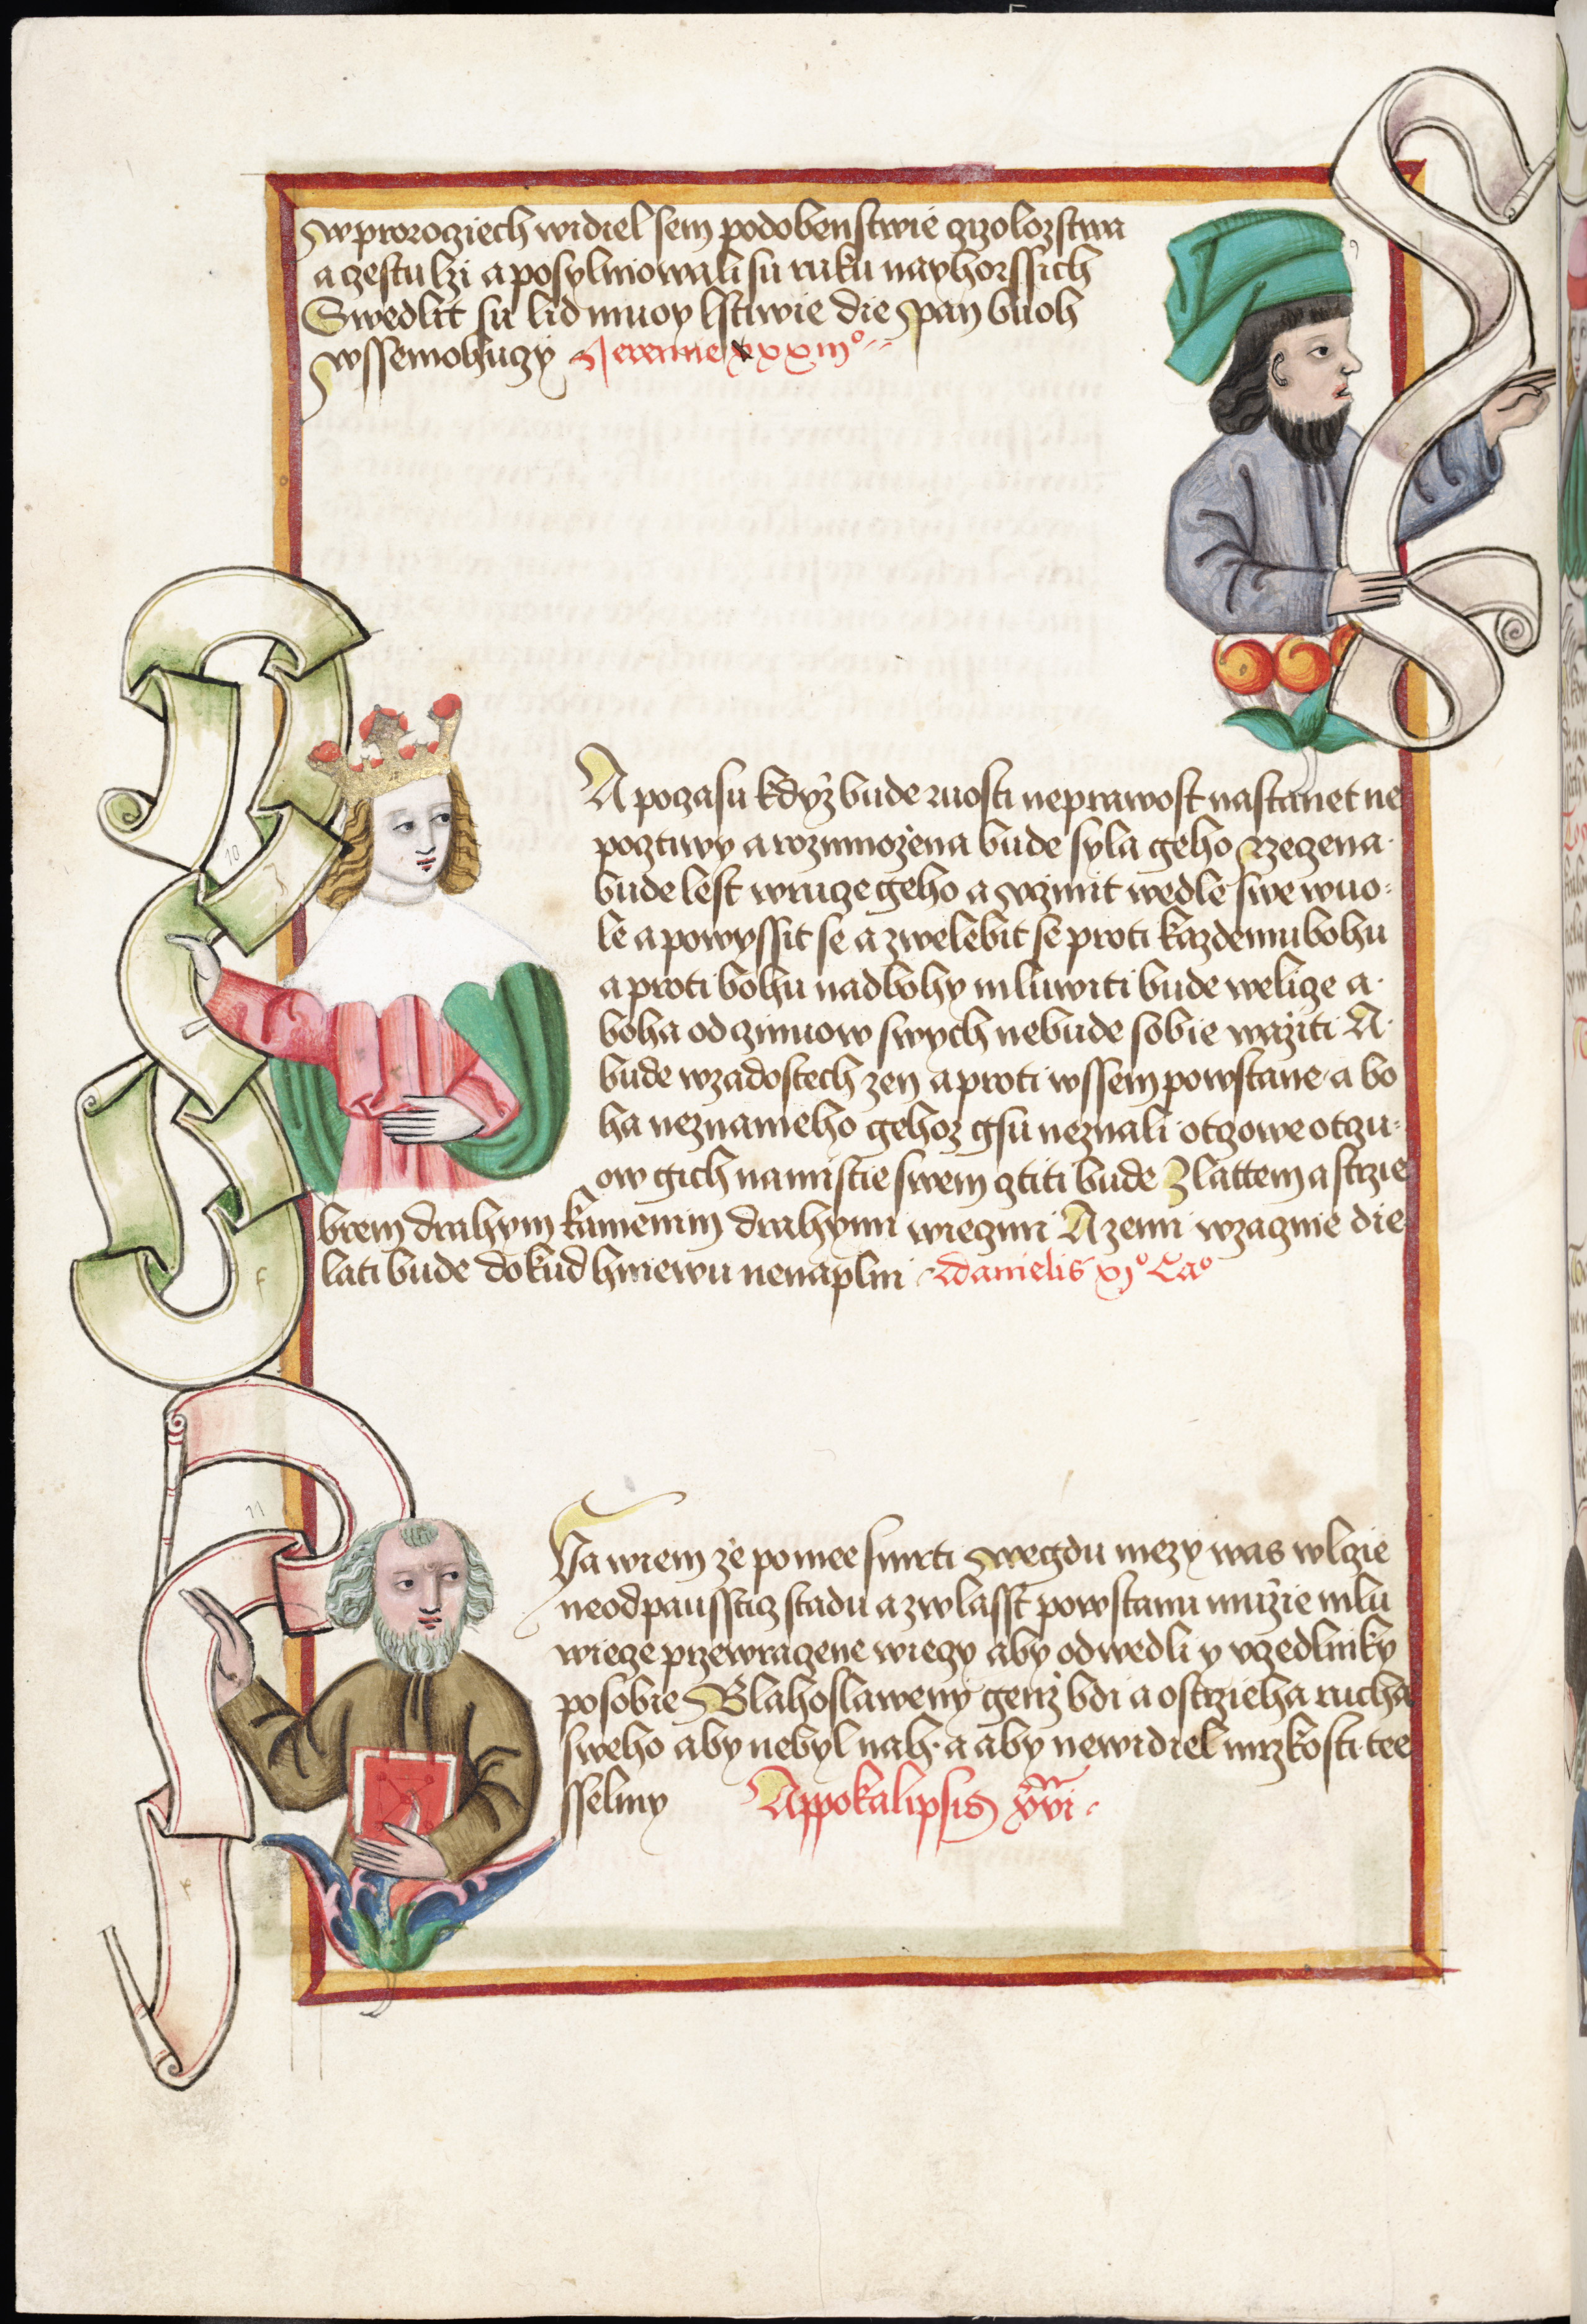 wprorogiech widiel sem podobenstwie czolozstwa
a gestu lzi a posylniowali su ruku nayhorssich
Swedlit su lid muoy lstiwie die pan buoh
wssemohuczy Jeremie xxxiii°
A poczasu kdyz bude ruosti neprawost nastanet ne
poczting a rozmnozena bude syla geho rzezena
bude lest wruze geho a vczinit wedle swe wuo=
le a powyssit se a zwelebit se proti kazdemu bohu
a proti bohu nad bohy mluwiti bude welige a
boha od czinuow swych nebude sobie waziti A
bude wzadostech zen a proti wssem powstane a bo
ha neznameho gehoz gsu neznali otczowe otczu=
ow gich na mistie swem cztiti bude Zlattem a strzie
brem drahym kamenim drahymi wieczmi A zemi wzagmie die
lati bude dokud hniewu nenaplni danielis xi° Ca°
Ja wiem ze po mee smrti wegdu mezy was wlczie
neodpausstiz stadu a zwlasst powstanu muzie mlu
wiege przewracene wieczy aby odwedli y vczedlniky
po sobie Blahoslaweny genz bdi a ostrzieha rucha
sweho aby nebyl nah a aby newidiel mrzkosti tee
sselmy Appokalipsis xvi